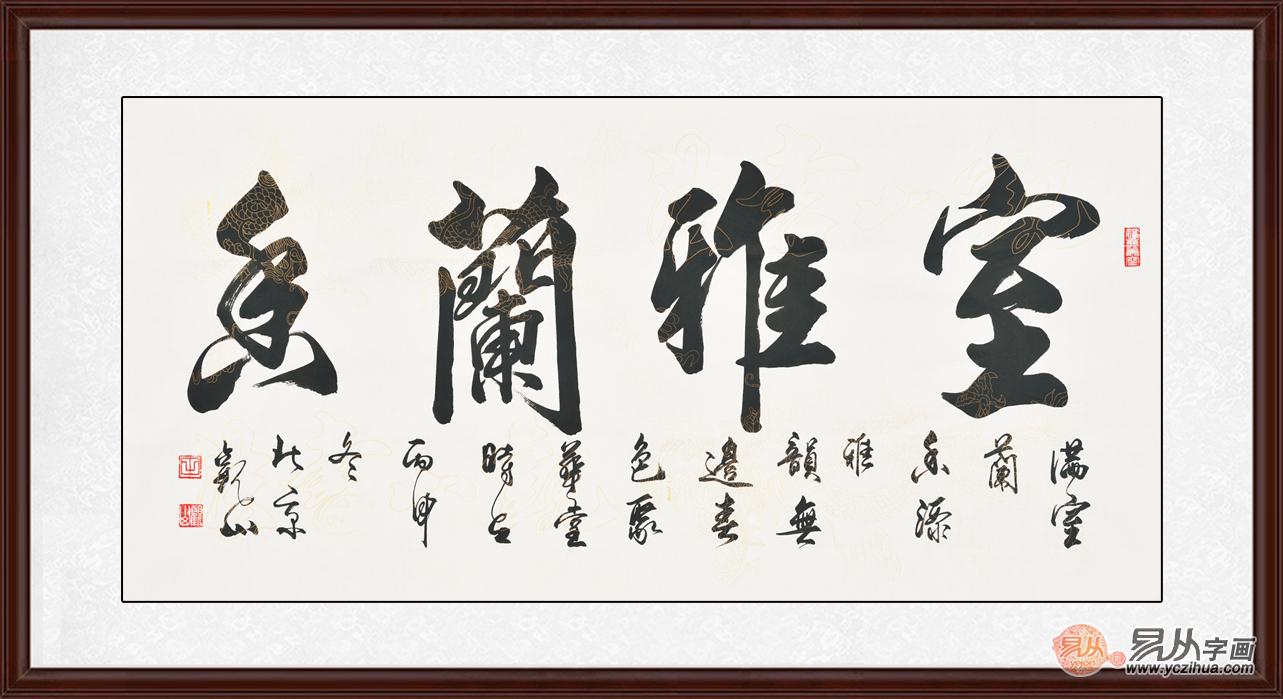 室雅蘭香
滿室
蘭
香添
雅
韻無
邊春
色聚
華堂
時在
丙申
冬
北京
觀山
易从字画
www.yczihua.com